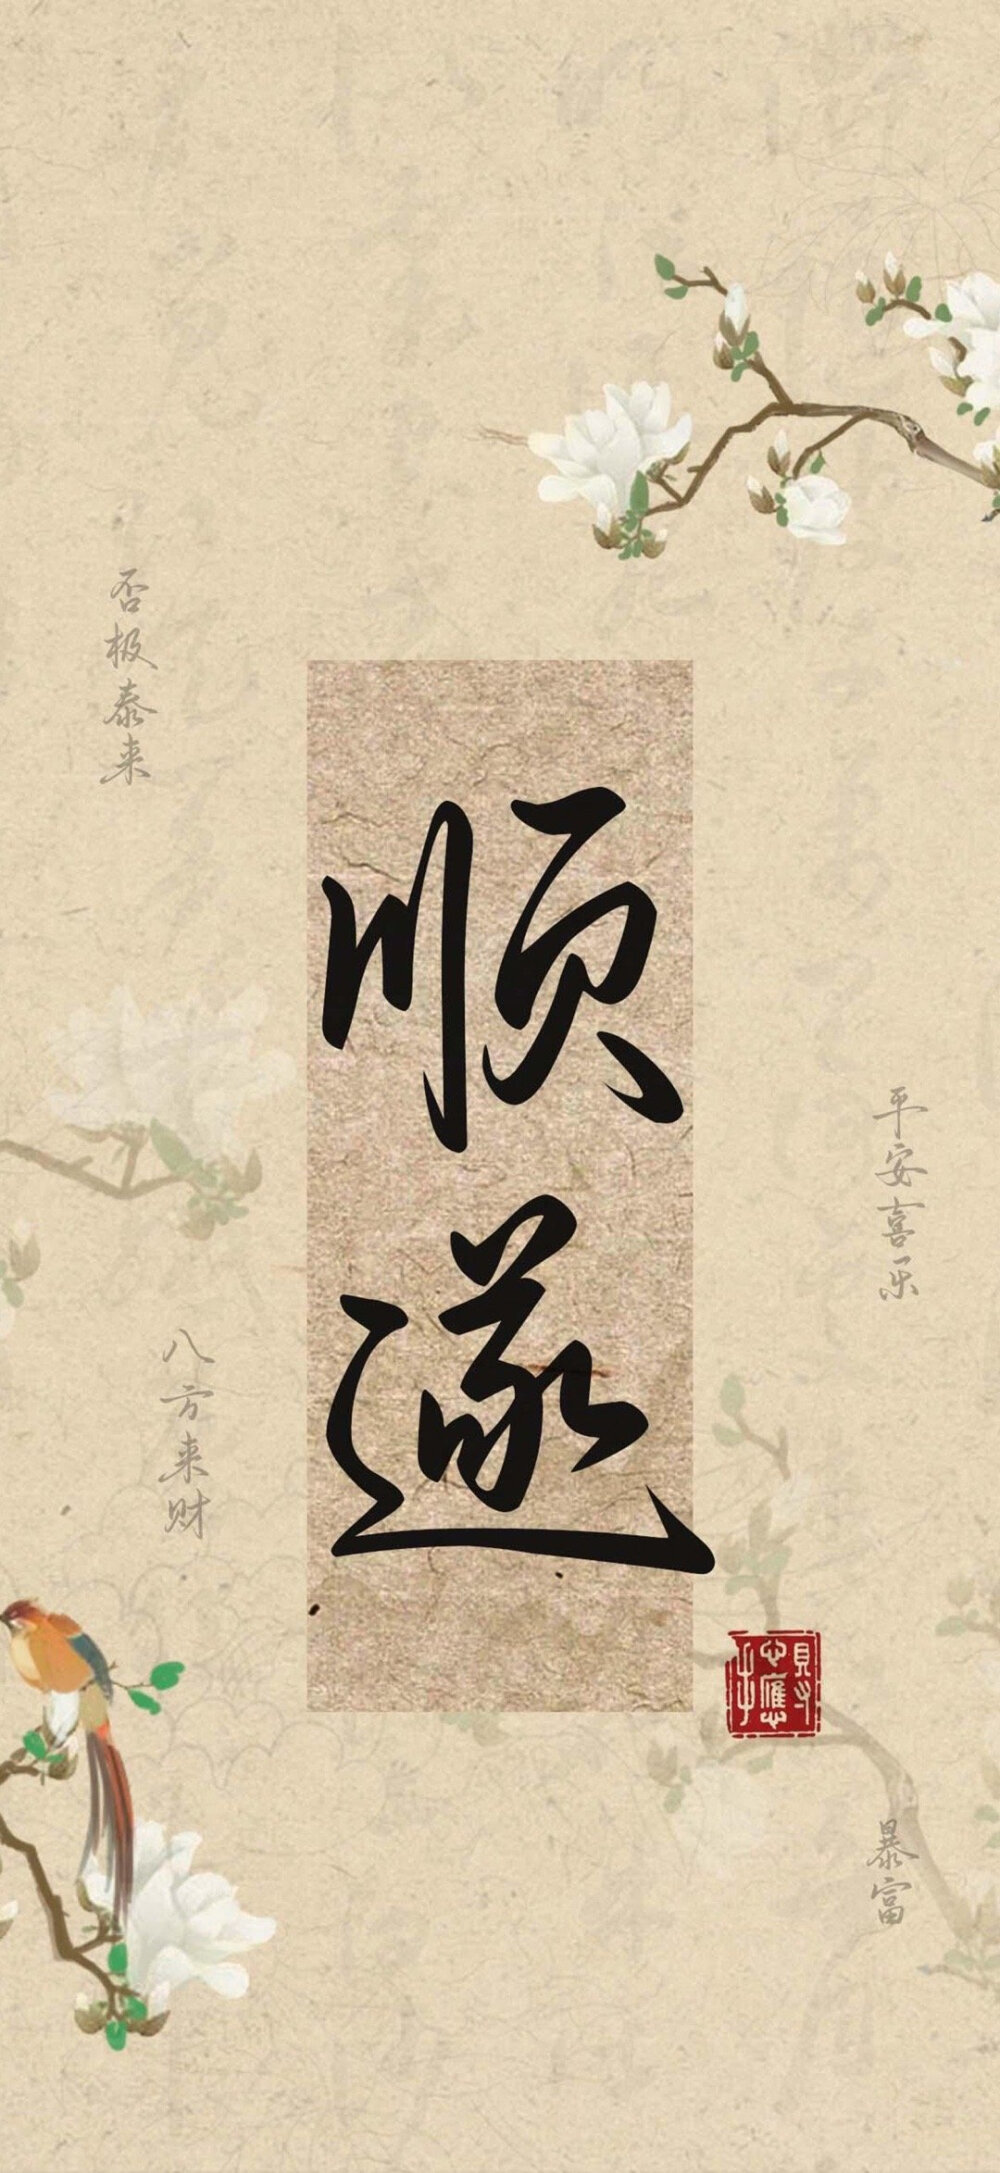 否极泰来
顺遂
平安喜乐
八方来财
得心應手
暴富